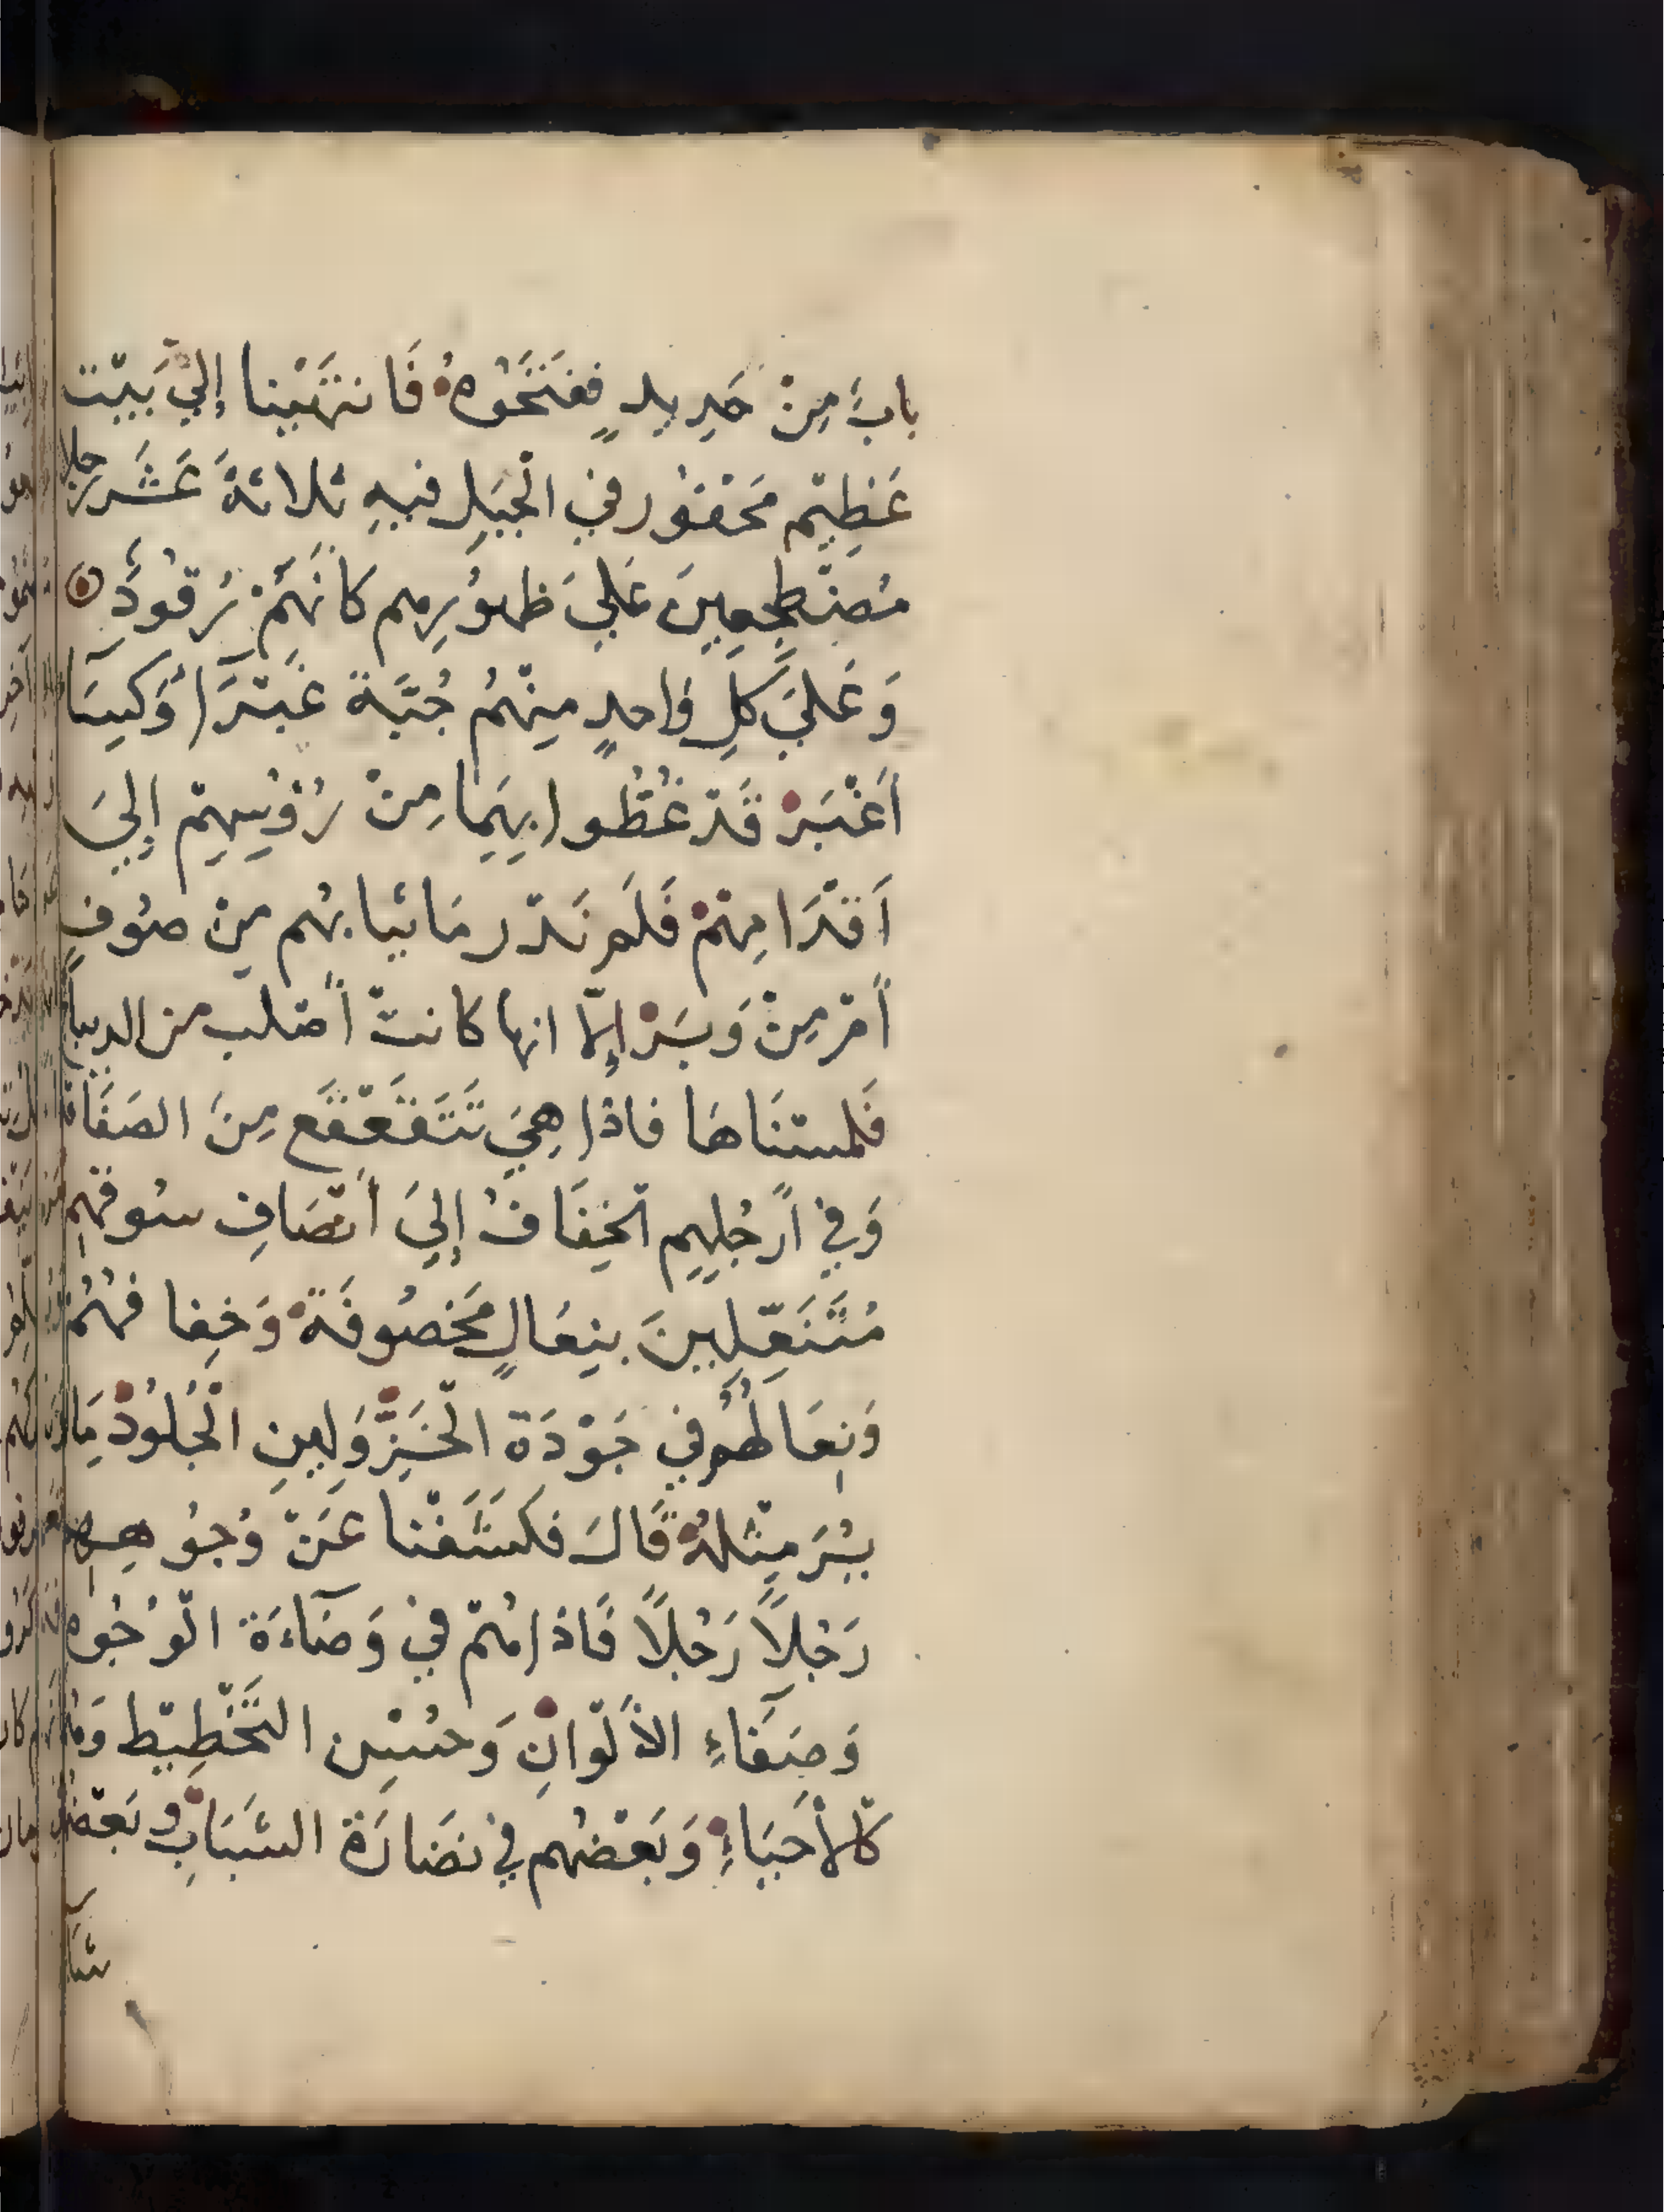 بابٌ مِنْ حَدِيدٍ ففَتَحُوهُ فَانتَهَيْنا إلىَ بَيْت
عَظِيْم مَحْفُور في الْجَبَلِ فيهِ ثلاثةَ عَشَر رجلا
مُضْطَجِعِينَ عَلىَ ظهوُرِهم كَانَهُمْ رُقوُدٌ
وَعَلىَ كلِ وَاحدٍ مِنْهُم جُبَّة غَبْرَآ أوْ كِسَآ
أَغْبَرْ قَدْ غُطُّوا بِهِمَا مِنْ رُؤسِهِمْ إلىَ
أقْدَامِهمْ فَلَم نَدْر مَا ثيابهُم مِنْ صوُفٍ
أمْ مِنْ وَبَرْ إلّا انها كانتْ أصْلب من الديباج
فَلمسْنَاهَا فاذا هِيَ تَتَقَعْقَع مِنَ الصَفَاقة
وَفِي أرْجُلِهِم الْخِفَافُ إلىَ أنْصَافِ سُوقهِم
مُتَنَعِّلِينَ بِنِعَالٍ مَخصُوفَةْ وَخِفافهُمْ
وَنِعَالهُم في جَوْدَة الْخَرِزّ وَلِينِ الْجُلُودْ مَا لم
يُرَ مِثْلهُ قَالَ فكَشَفْنا عَنْ وُجوُهِهِم
رَجُلاً رَجُلاً فَاذا هُمْ في وَضَآءَة الْوُجُوه
وَصَفَاءِ الأَلْوانِ وَحُسْنِ التَّخْطِيْط وَهُم
كَالأحْيَاءِ وَبَعْضهُم في نَضَارَة الشَبَابِ وبَعْضهُم